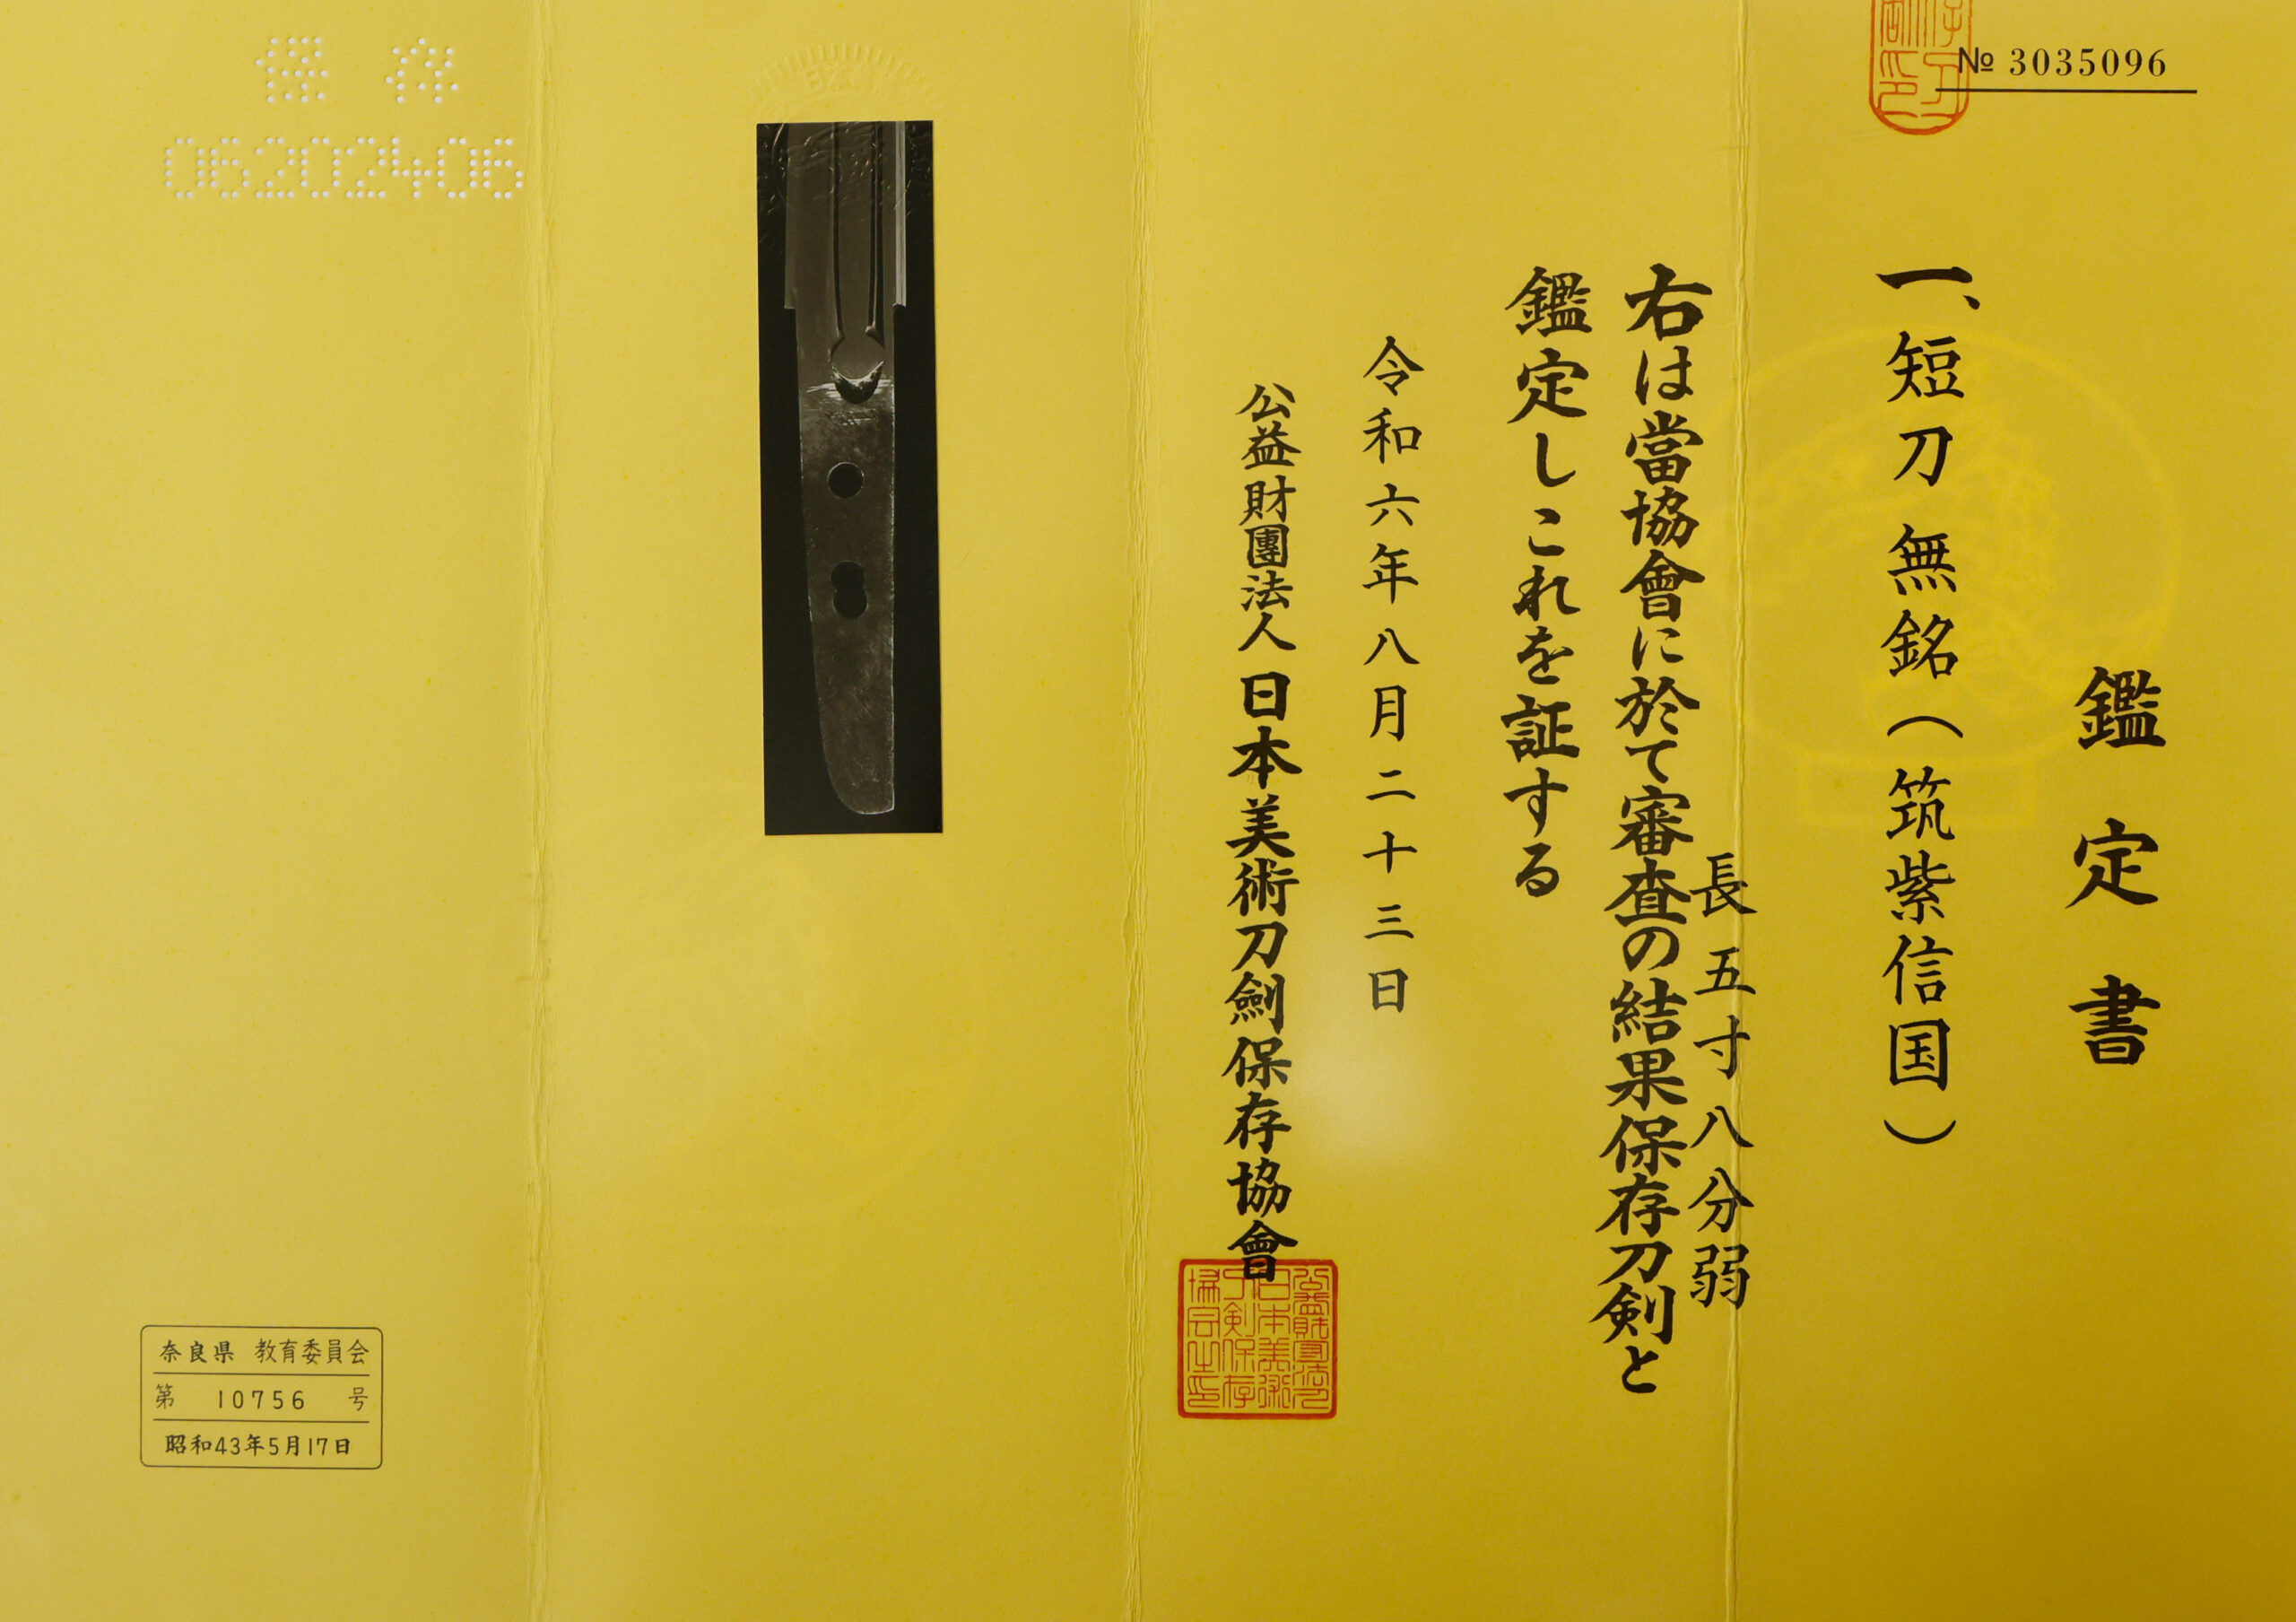 № 3035096
鑑定書
一、短刀 無銘(筑紫信国)
長五寸八分弱
右は當協會に於て審査の結果保存刀剣と
鑑定しこれを証する
令和六年八月二十三日
公益財團法人 日本美術刀劍保存協會
保存
06202406
奈良県 教育委員会
第 10756 号
昭和43年5月17日